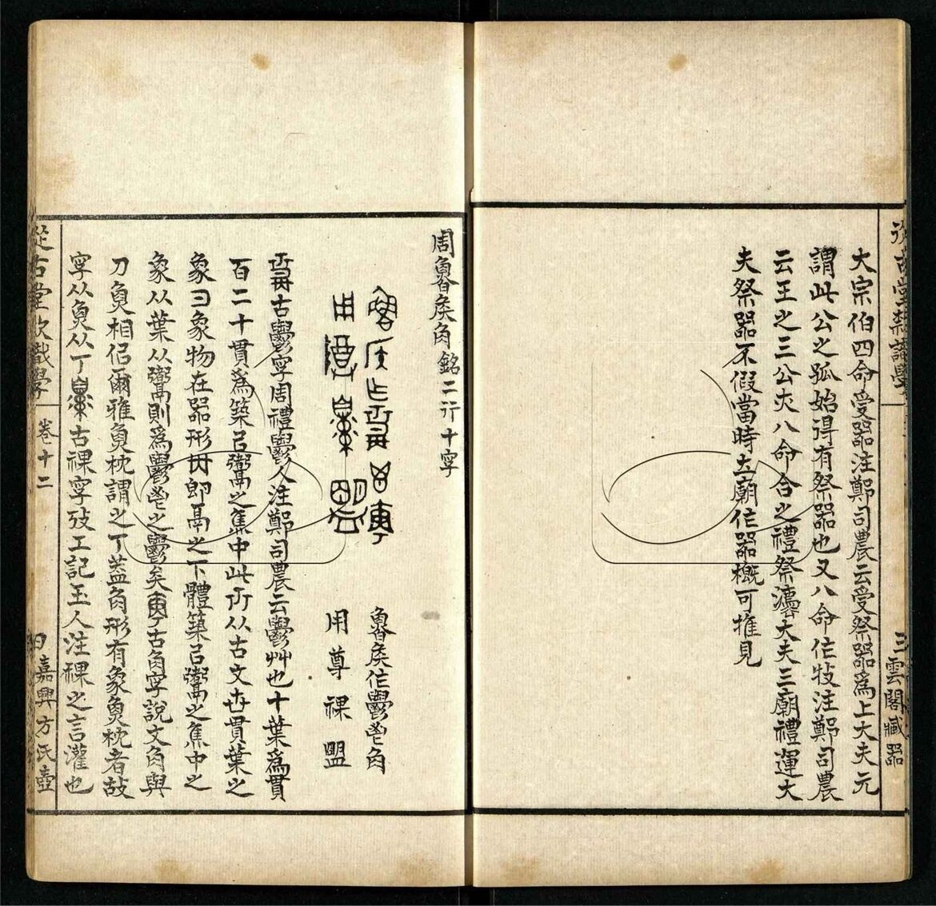 大宗伯四命受器注鄭司農云受祭器爲上大夫元
謂此公之孤始得有祭器也又八命作牧注鄭司農
云王之三公亦八命合之禮祭灋大夫三廟禮運大
夫祭器不假當時立廟作器概可推見
三雲閣藏器
周魯矦角銘二行十字
魯矦作鬱鬯角
用尊祼盟
古鬱字周禮鬱人注鄭司農云鬱艸也十葉爲貫
百二十貫爲築㠯鬻之焦中此所从古文
貫葉之
象
象物在器形
卽鬲之下體築㠯鬻之焦中之
象从葉从鬻則爲鬱鬯之鬱矣
古角字說文角與
刀魚相佀爾雅魚枕謂之丁蓋角形有象魚枕者故
字从魚从丁
古祼字攷工記玉人注祼之言灌也
從古堂款識學
卷十二
四
嘉興方氏壺